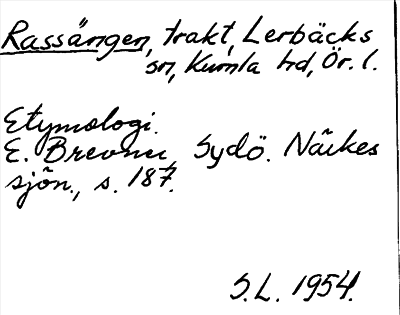 Rassängen, trakt, Lerbäcks
sn, Kumla hd, Ör. l.
Etymologi.
E. Brevner, Sydö. Närkes
sjön., s. 187.
S.L. 1954.